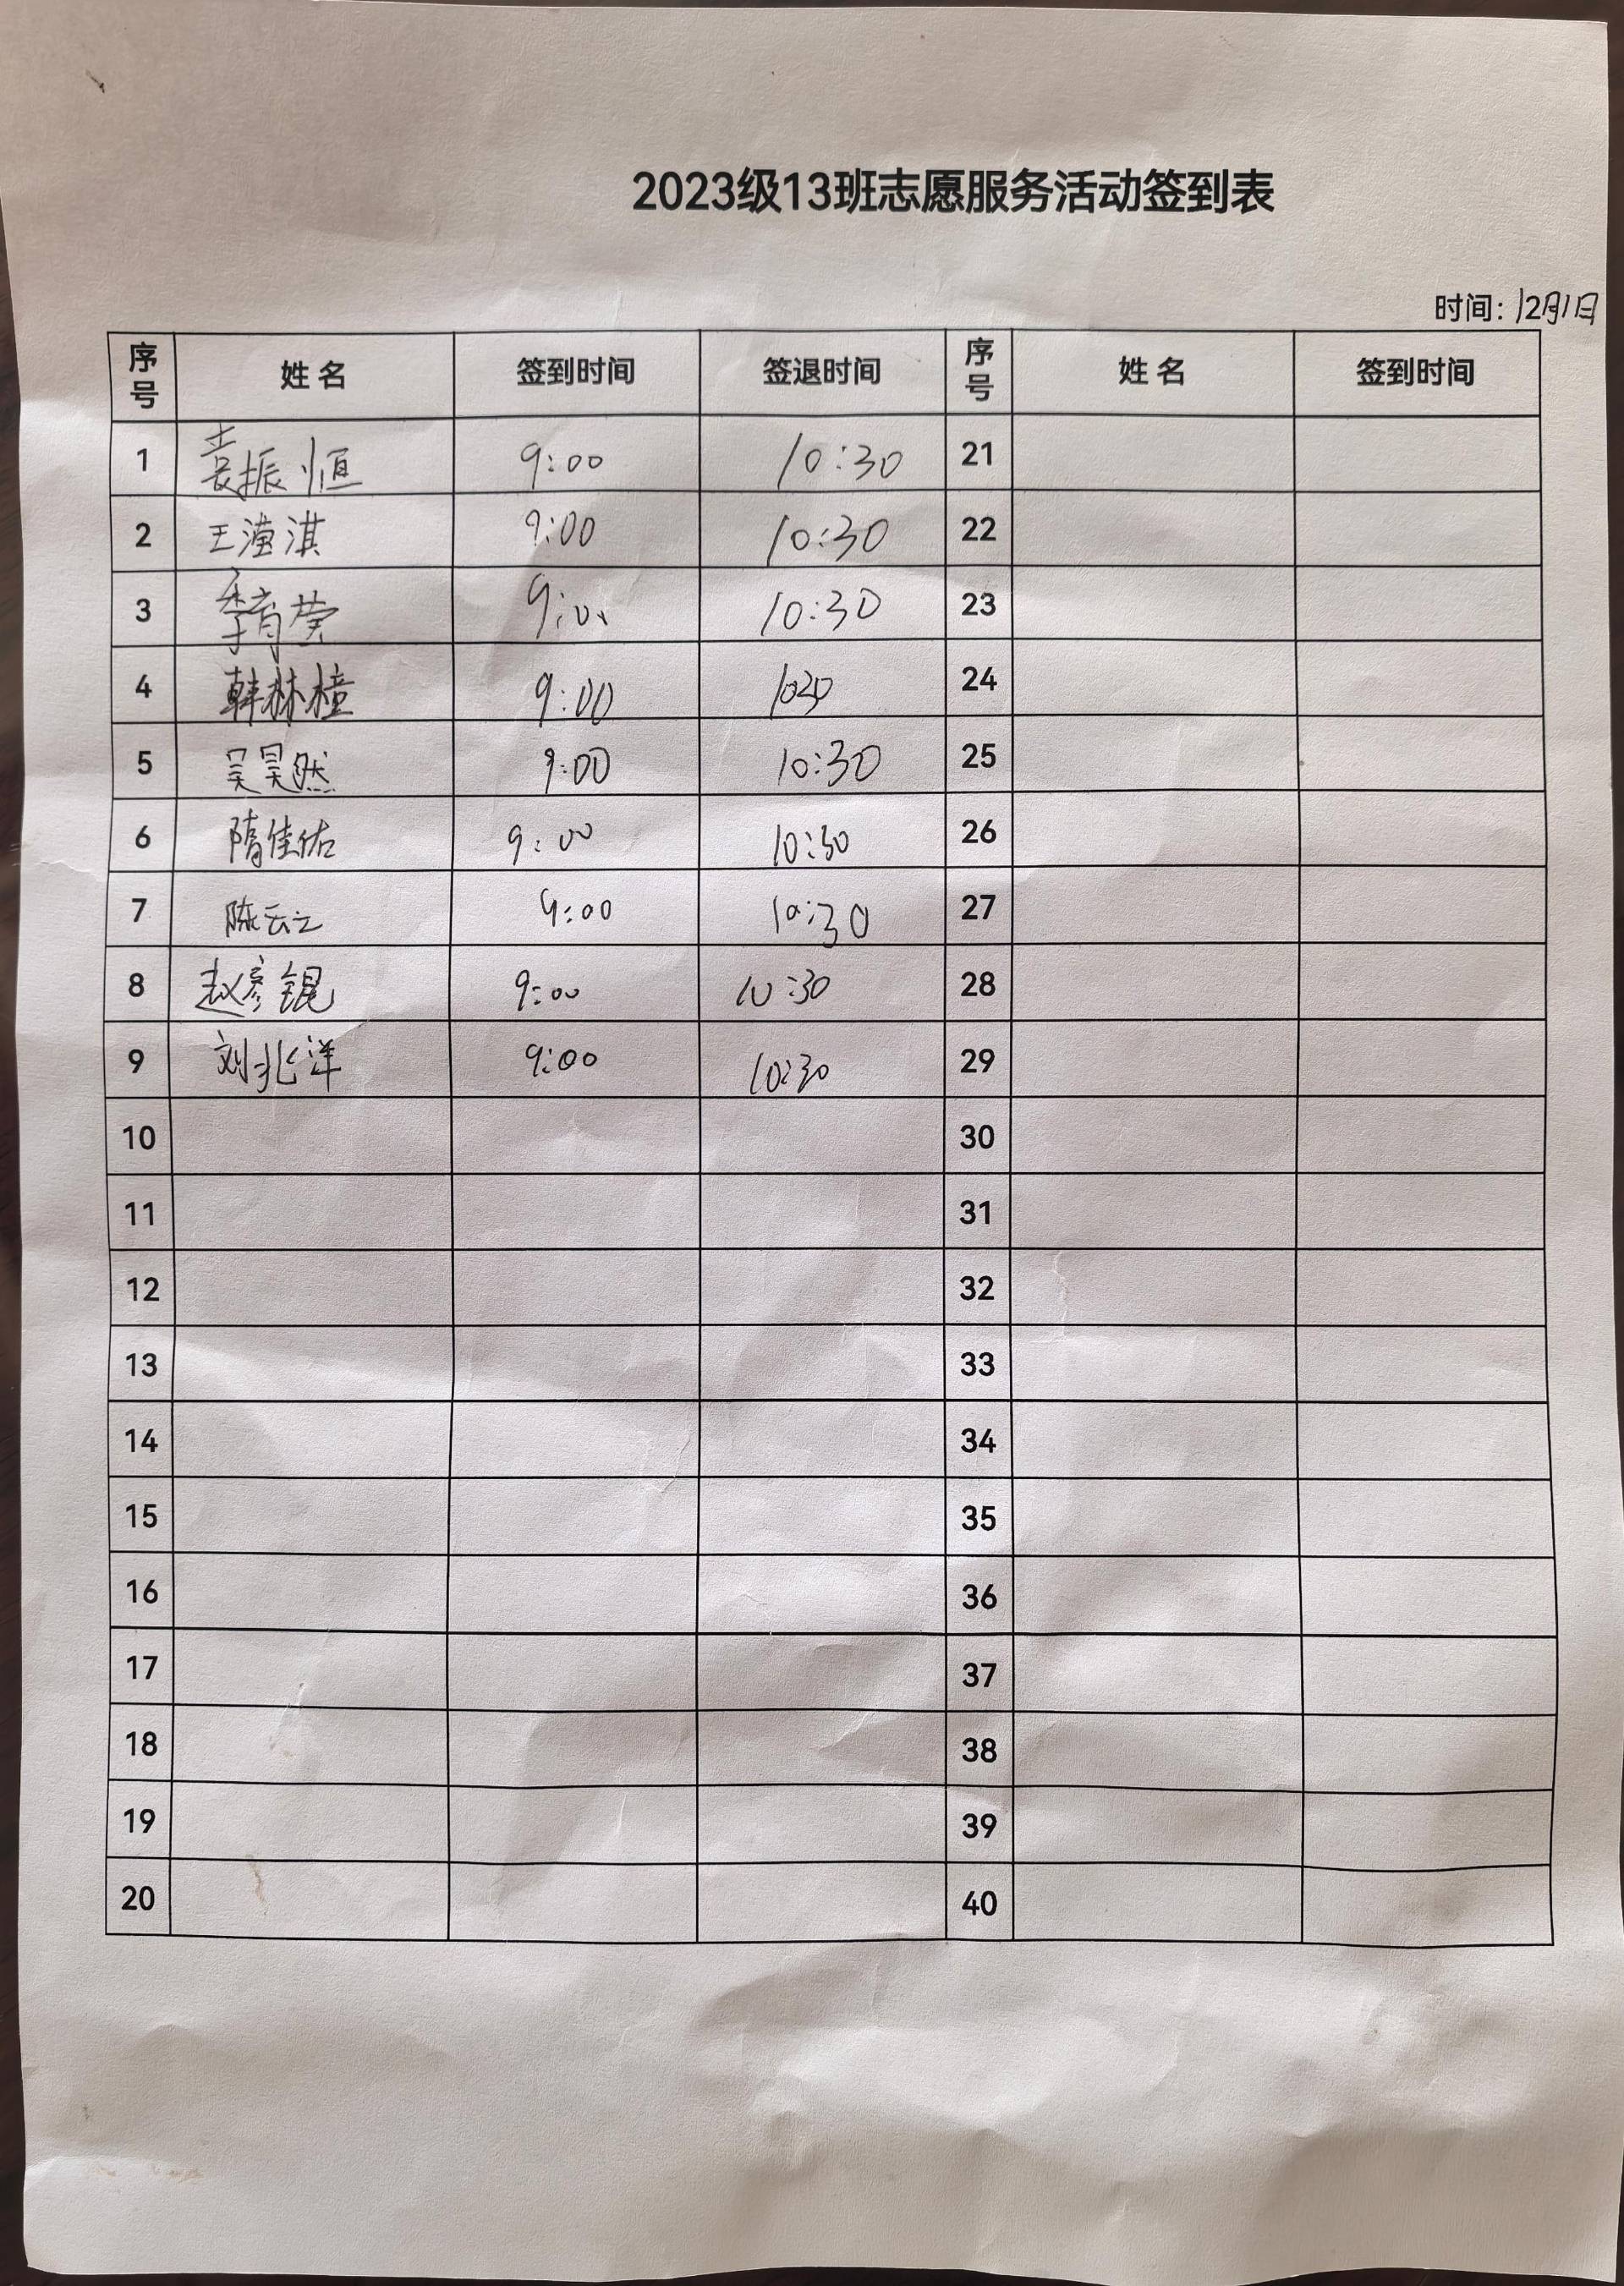 2023级13班志愿服务活动签到表
时间：12月1日
序号 姓名 签到时间 签退时间 序号 姓名 签到时间
1 袁振恒 9:00 10:30 21
2 王潼淇 9:00 10:30 22
3 季育莹 9:00 10:30 23
4 韩林橦 9:00 1030 24
5 吴昊然 9:00 10:30 25
6 隋佳佑 9:00 10:30 26
7 陈云之 9:00 10:30 27
8 赵彦锟 9:00 10:30 28
9 刘兆洋 9:00 10:30 29
10 30
11 31
12 32
13 33
14 34
15 35
16 36
17 37
18 38
19 39
20 40